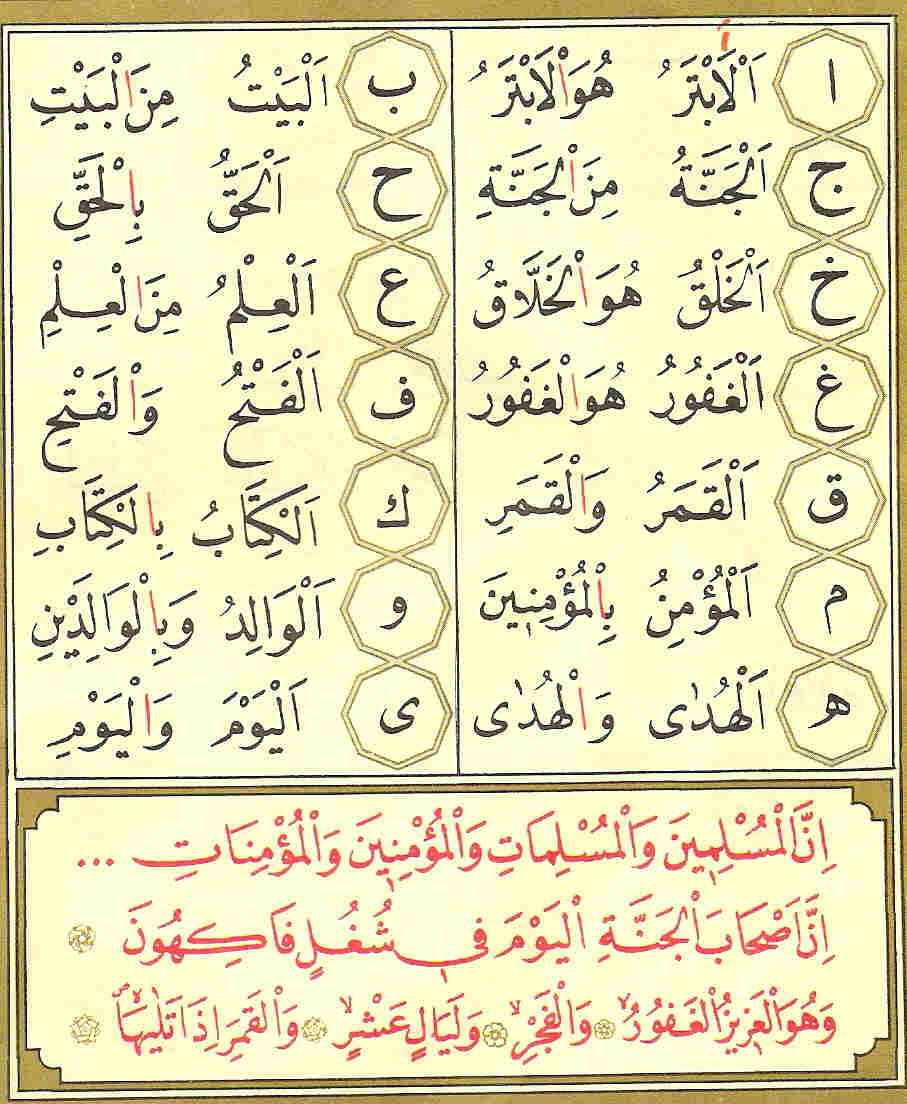 ا اَلْاَبْتَرُ هُوَالْاَبْتَرُ ب اَلْبَيْتُ مِنَ الْبَيْتِ
ج اَلْجَنَّةُ مِنَ الْجَنَّةِ ح اَلْحَقُّ بِالْحَقِّ
خ اَلْخَلْقُ هُوَ الْخَلَّاقُ ع اَلْعِلْمُ مِنَ الْعِلْمِ
غ اَلْغَفُورُ هُوَ الْغَفُورُ ف اَلْفَتْحُ وَالْفَتْحِ
ق اَلْقَمَرُ وَالْقَمَرِ ك اَلْكِتَابُ بِالْكِتَابِ
م اَلْمُؤْمِنُ بِالْمُؤْمِنِينَ و اَلْوَالِدُ وَبِالْوَالِدَيْنِ
ه اَلْهُدٰى وَالْهُدٰى ى اَلْيَوْمَ وَالْيَوْمِ
اِنَّ الْمُسْلِمِينَ وَالْمُسْلِمَاتِ وَالْمُؤْمِنِينَ وَالْمُؤْمِنَاتِ ...
اِنَّ اَصْحَابَ الْجَنَّةِ الْيَوْمَ فِى شُغُلٍ فَاكِهُونَ
وَهُوَ الْعَزِيزُ الْغَفُورُ وَالْفَجْرِ وَلَيَالٍ عَشْرٍ وَالْقَمَرِ اِذَا تَلٰيهَا